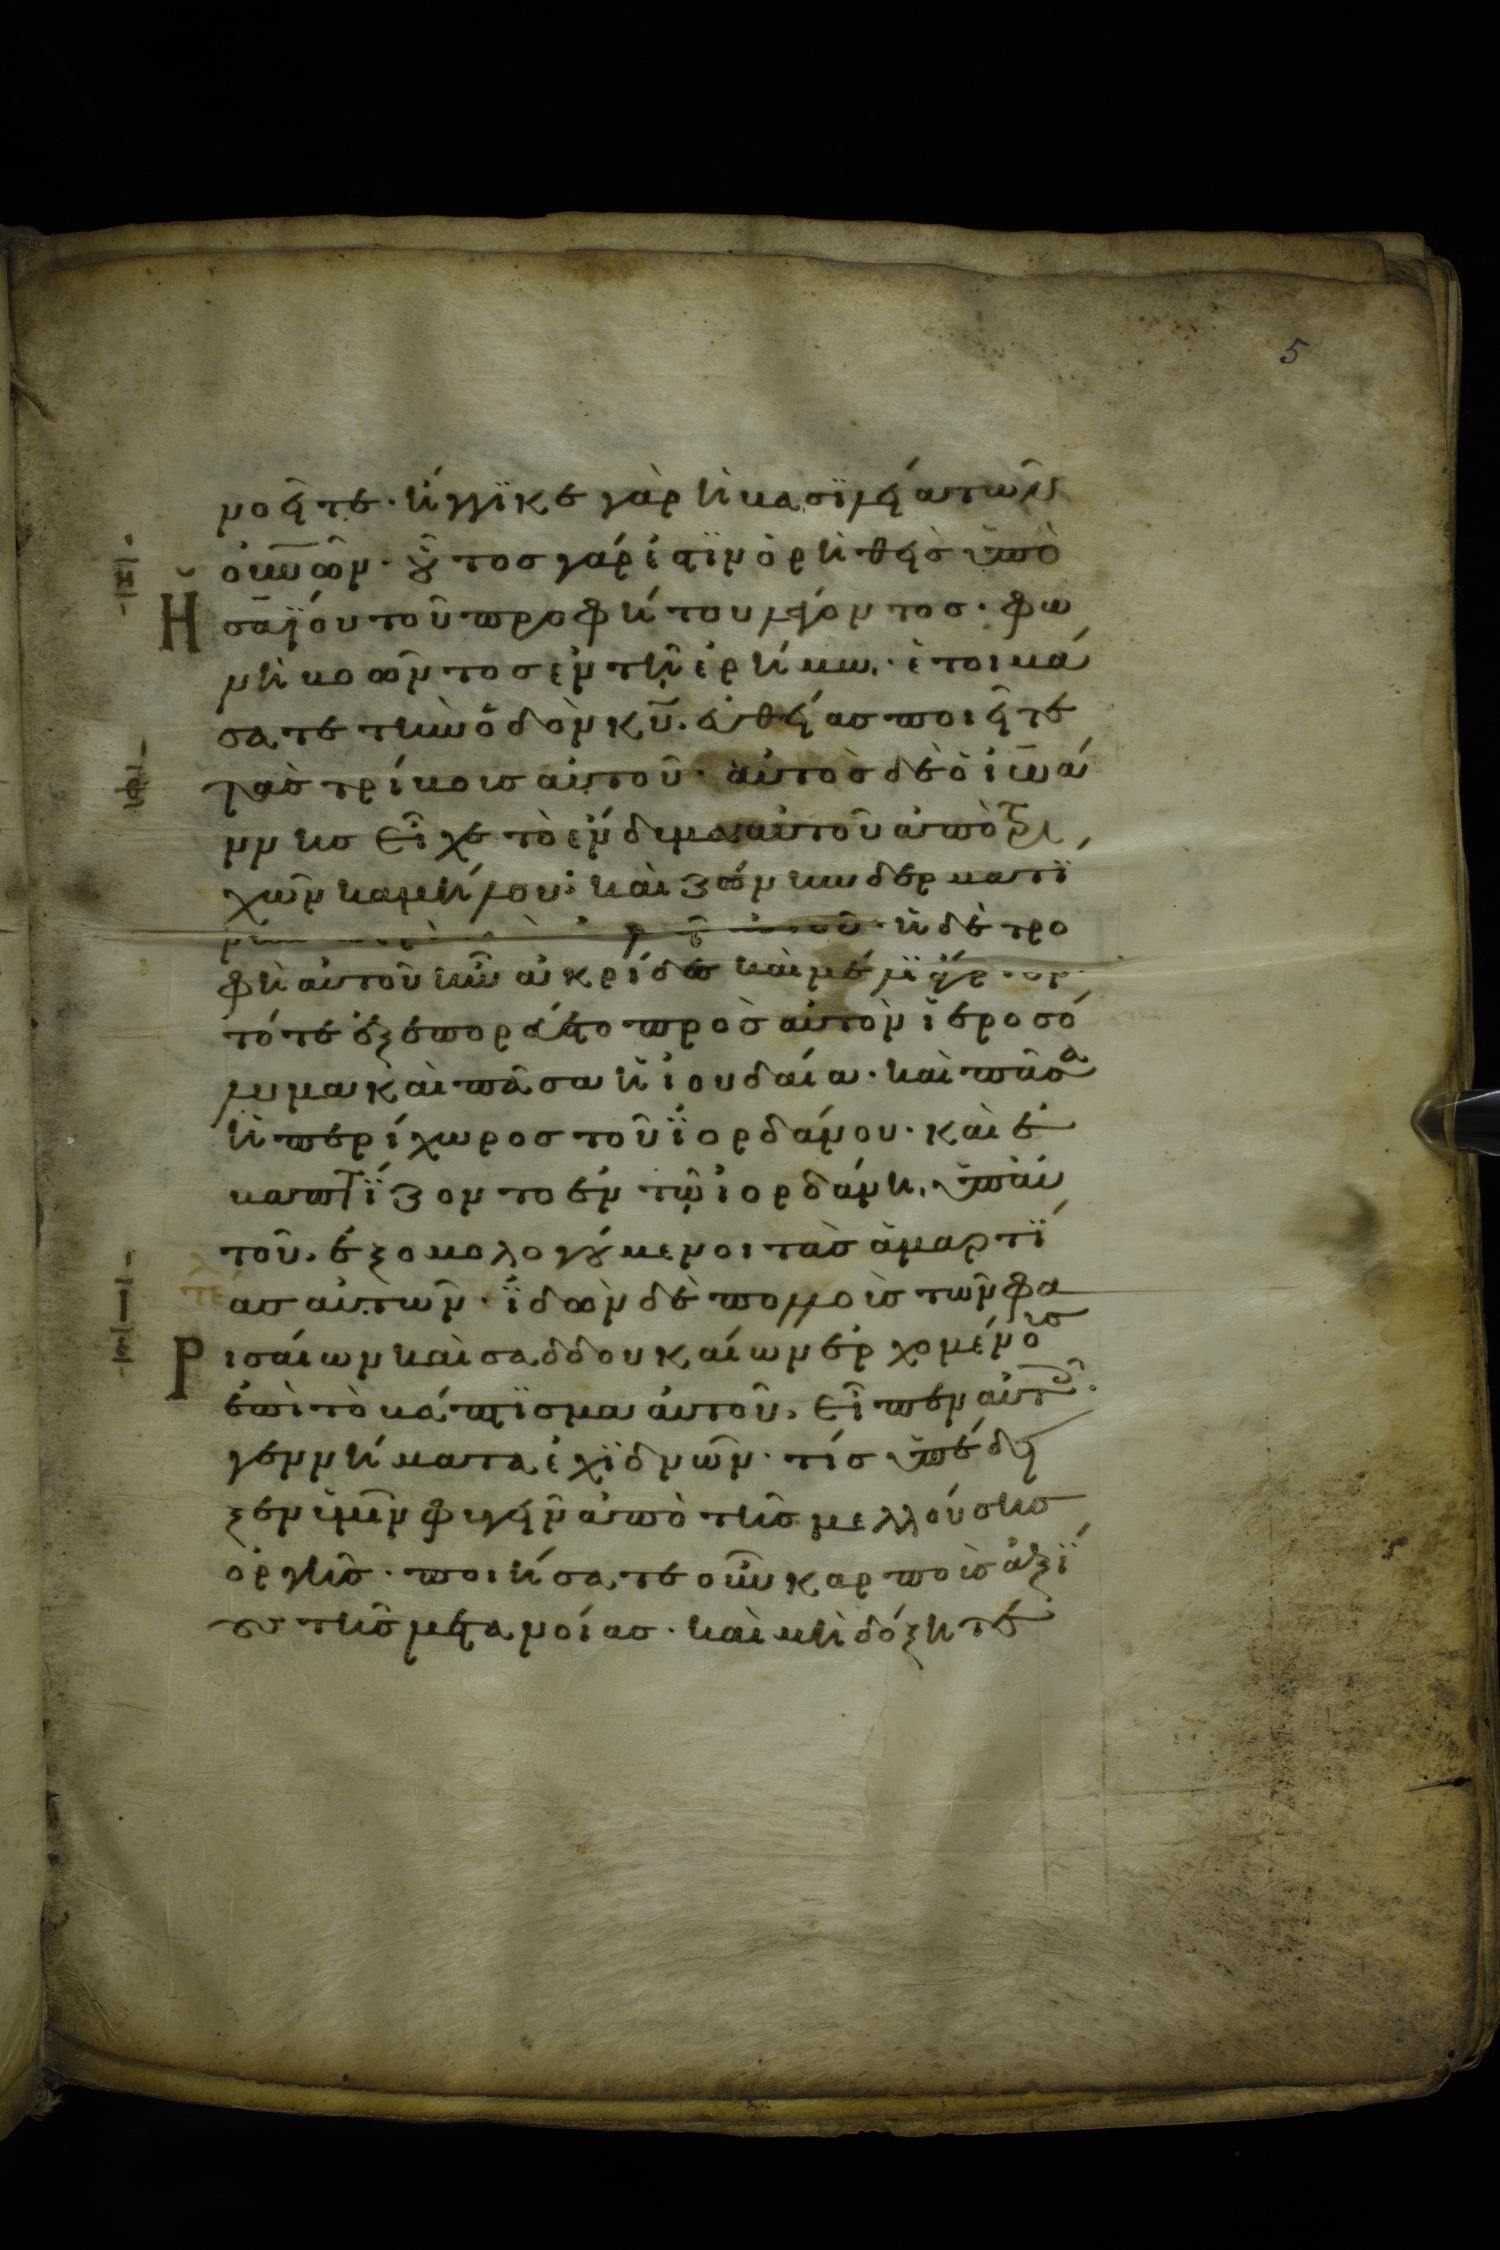 5
νοεῖτε· ἤγγϊκε γὰρ ἡ βασϊλεία τῶν
οὐνῶν· οὗτος γάρ ἐστϊν ὁ ρηθεὶς ὑπὸ
Ἡσαΐου τοῦ προφήτου λέγοντος· φω
νὴ βοῶντος ἐν τῆ ἐρήμω· ἑτοιμά
σατε τὴν ὁδὸν κῡ· εὐθείας ποιεῖτε
τὰς τρίβους αὐτοῦ· αὐτὸς δὲ ὁ ἰωά
ννης εἶχε τὸ ἔνδυμα αὐτοῦ ἀπὸ τρι
χῶν καμήλου· καὶ ζώνην δερματΐ
νην αὐτοῦ· ἡ δὲ τρο
φὴ αὐτοῦ ἦν ἀκρίδες καὶ μέλϊ
τότε ἐξεπορεύετο πρὸς αὐτὸν ἱεροσό
λυμα καὶ πᾶσα ἡ ἰουδαία· καὶ πᾶσα
ἡ περίχωρος τοῦ ϊορδάνου· καὶ ἐ
βαπτΐζοντο ἐν τῶ ἰορδάνη, ὑπ' αὐ
τοῦ· ἐξομολογούμενοι τὰς ἁμαρτΐ
ας αὐτῶν· ϊδὼν δὲ πολλοὺς τῶν φα
Ρισαίων καὶ σαδδουκαίων ἐρχομένους
ἐπὶ τὸ βάπτϊσμα αὐτοῦ, εἶπεν αὐτοῖς·
γεννήματα ἐχϊδνῶν· τίς ὑπέδει
ξεν ὑμῖν φυγεῖν ἀπὸ τῆς μελλούσης
ὀργῆς· ποιήσατε οὖν καρποὺς ἀξΐ
ους τῆς μετανοίας· καὶ μὴ δόξητε